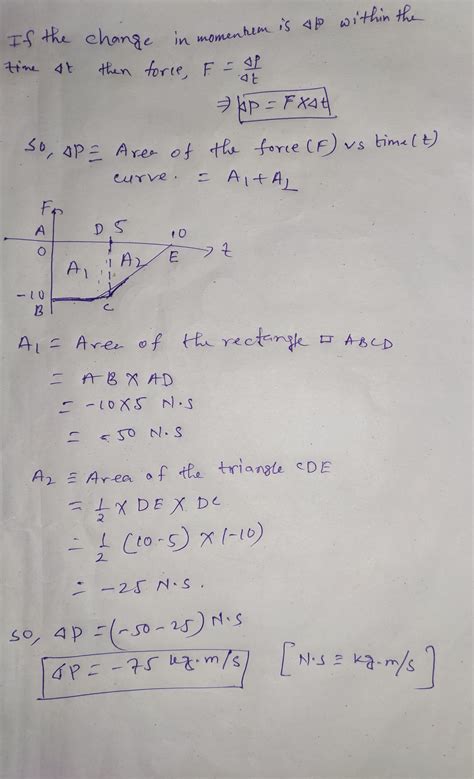 If the change in momentum is ΔP within the
time Δt then force, F = ΔP/Δt
⇒ ΔP = F×Δt
So, ΔP = Area of the force (F) vs time (t)
curve. = A1 + A2
F
A D 5 10
O A1 A2 E t
-10
B C
A1 = Area of the rectangle □ ABCD
= AB × AD
= -10×5 N·S
= -50 N·S
A2 = Area of the triangle CDE
= 1/2 × DE × DC
= 1/2 (10-5) × (-10)
= -25 N·S.
So, ΔP = (-50-25) N·S
ΔP = -75 kg·m/s [N·S ≡ kg·m/s]